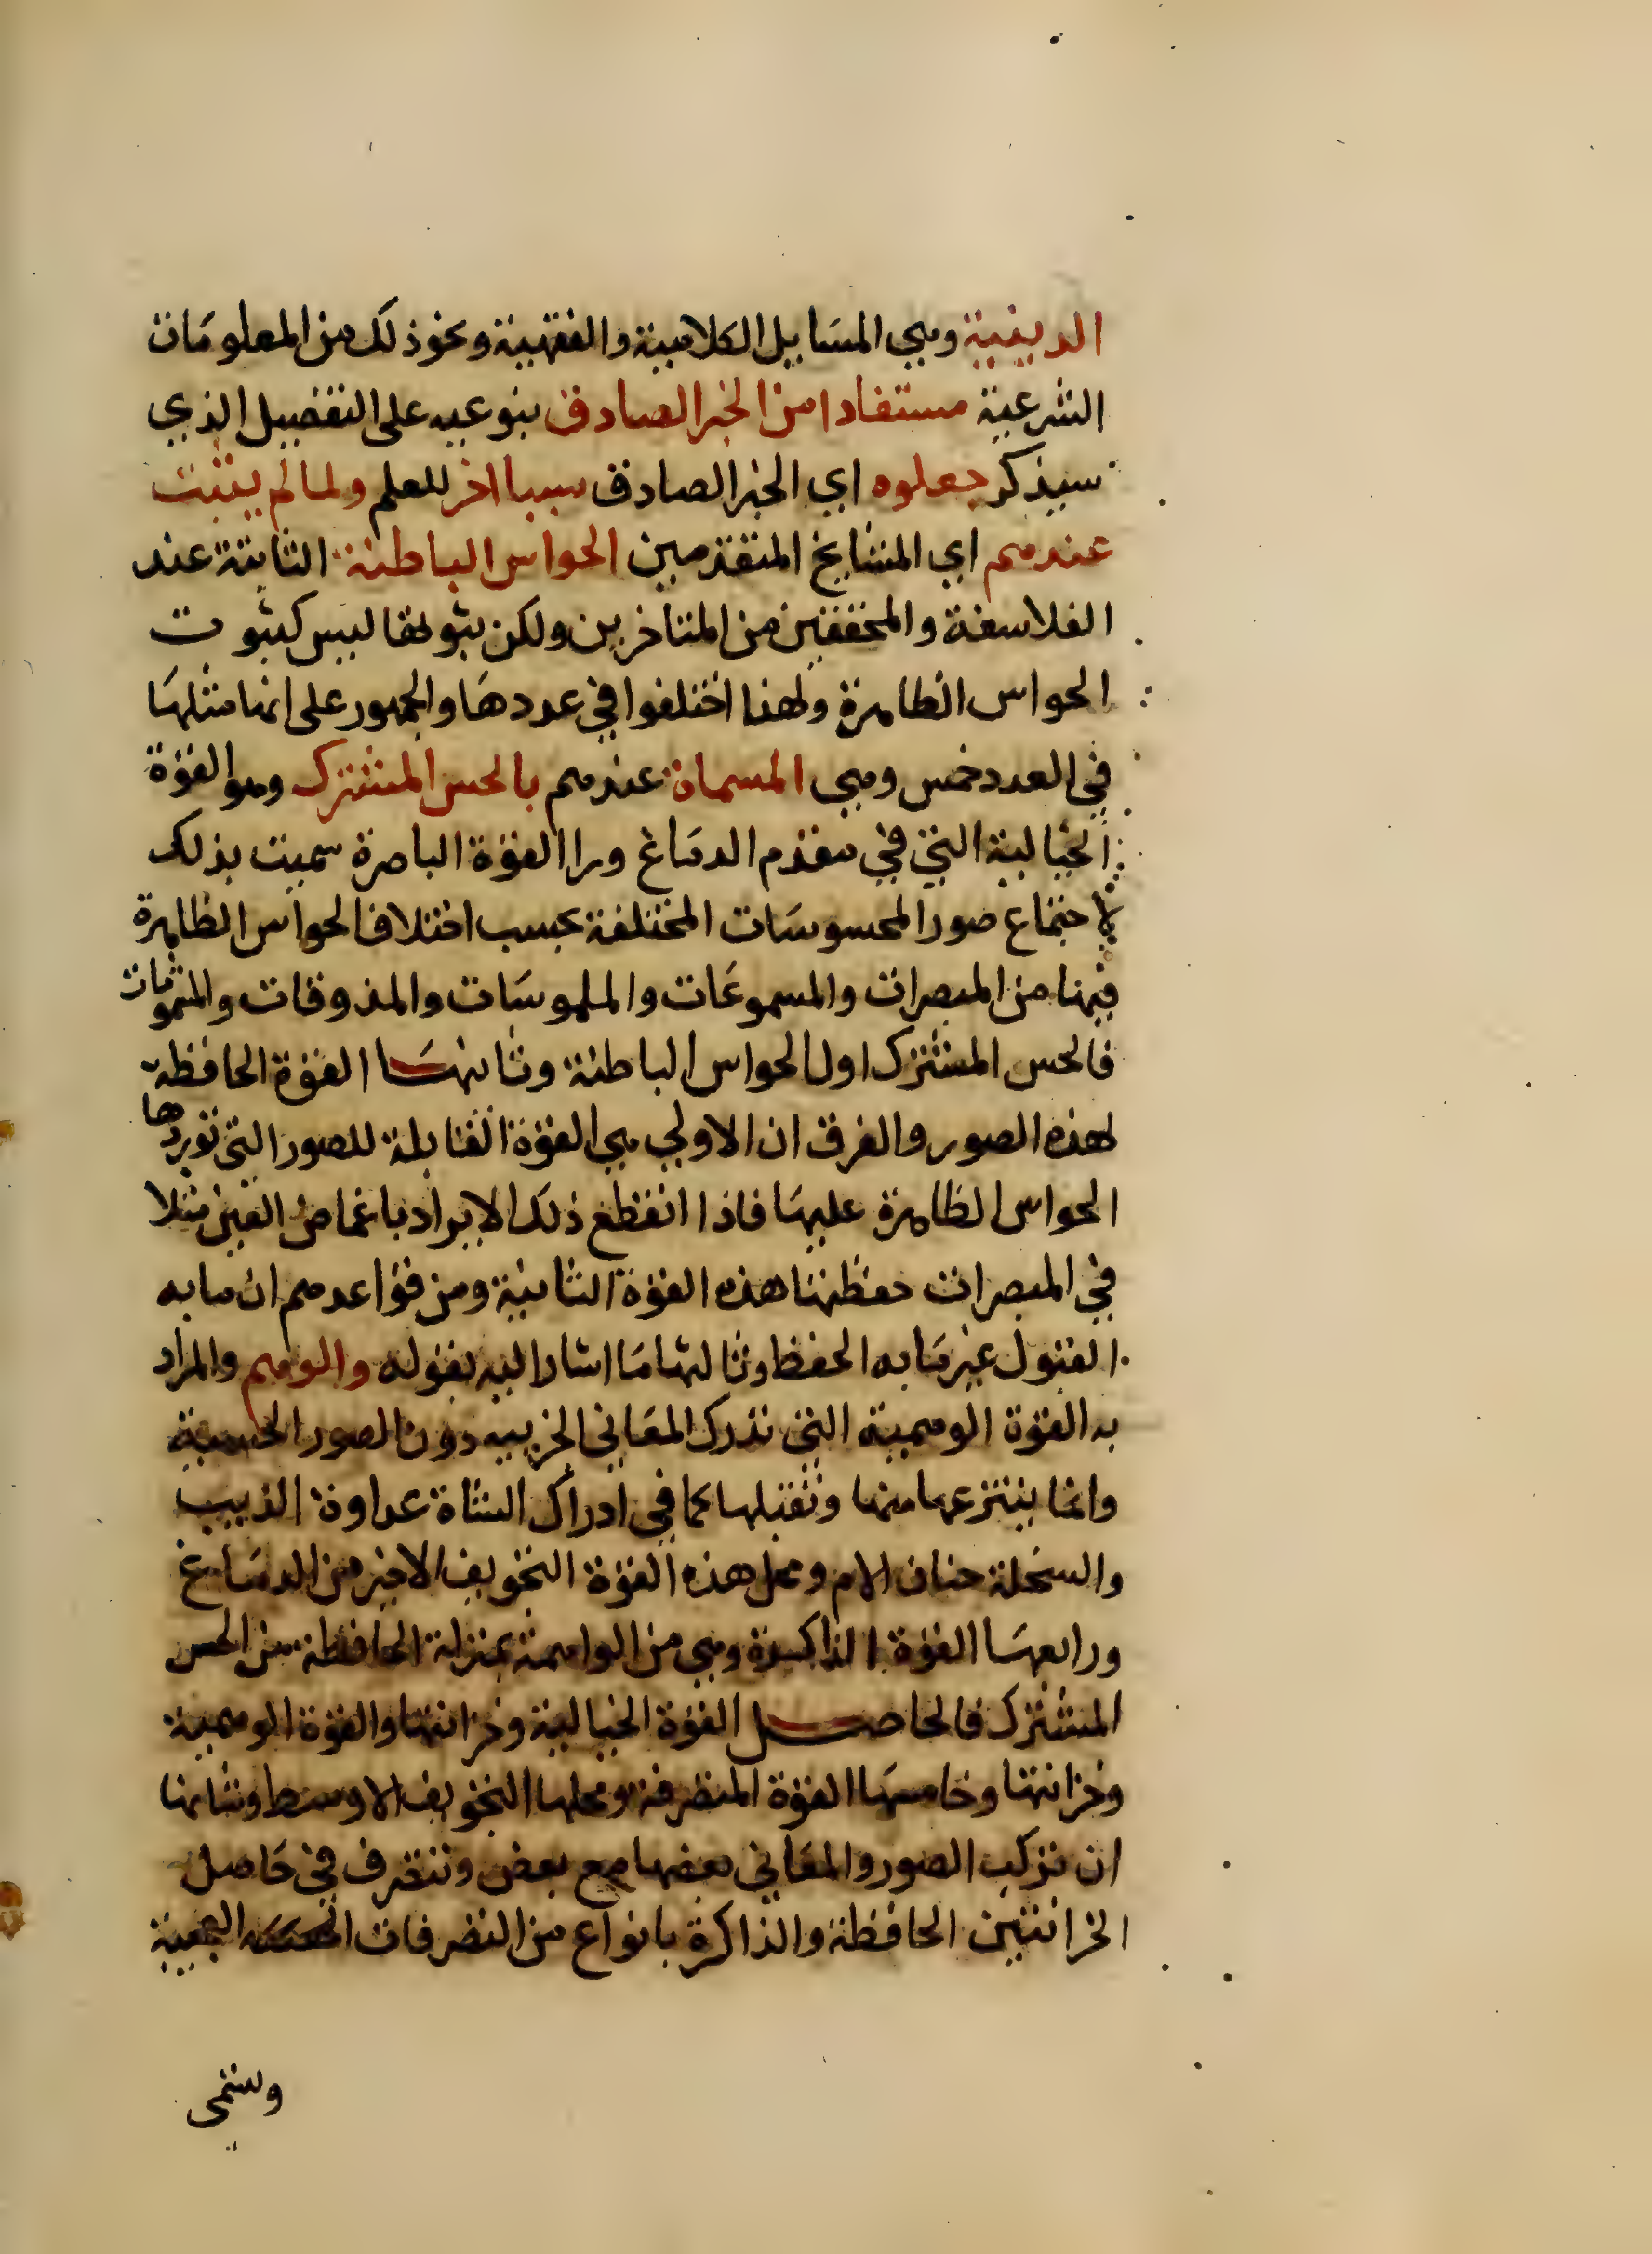 الدينية وهي المسايل الكلامية والفقهية ونحو ذلك من المعلومات
الشرعية مستفادا من الخبر الصادق بنوعيه على التفصيل الذي
سيذكر جعلوه اي الخبر الصادق سببا اخر للعلم ولما لم يثبت
عندهم اي المشايخ المتقدمين الحواس الباطنة الثابتة عند
الفلاسفة والمحققين من المتاخرين ولكن ثبوتها ليس كثبوت
الحواس الظاهرة ولهذا اختلفوا في عددها والجمهور على انها مثلها
في العدد خمس وهي المسماة عندهم بالحس المشترك وهو القوة
الخيالية التي في مقدم الدماغ ورا القوة الباصرة سميت بذلك
لاجتماع صور المحسوسات المختلفة بحسب اختلاف الحواس الظاهرة
فيها من المبصرات والمسموعات والملموسات والمذوقات والمشمومات
فالحس المشترك اول الحواس الباطنة وثانيها القوة الحافظة
لهذه الصور والفرق ان الاولي هي القوة القابلة للصور التي توردها
الحواس الظاهرة عليها فاذا انقطع ذلك الايراد باغماض العين مثلا
في المبصرات حفظتها هذه القوة الثانية ومن قواعدهم ان ما به
القبول غير ما به الحفظ وثالثها ما اشار اليه بقوله والوهم والمراد
به القوة الوهمية التي تدرك المعاني الجزييه دون الصور الحسية
وانما ينتزعها منها وتقبلها كما في ادراك الشاة عداوة الذييب
والسخلة حنان الام ومحل هذه القوة التجويف الاخير من الدماغ
ورابعها القوة الذاكرة وهي من الواهمة بمنزلة الحافظة من الحس
المشترك فالحاصل القوة الخيالية وخزانتها والقوة الوهمية
وخزانتها وخامسها القوة المتصرفة ومحلها التجويف الاوسط وشانها
ان تركب الصور والمعاني بعضها مع بعض وتتصرف في حاصل
الخزانتين الحافظة والذاكرة بانواع من التصرفات العجيبة
وتسمى